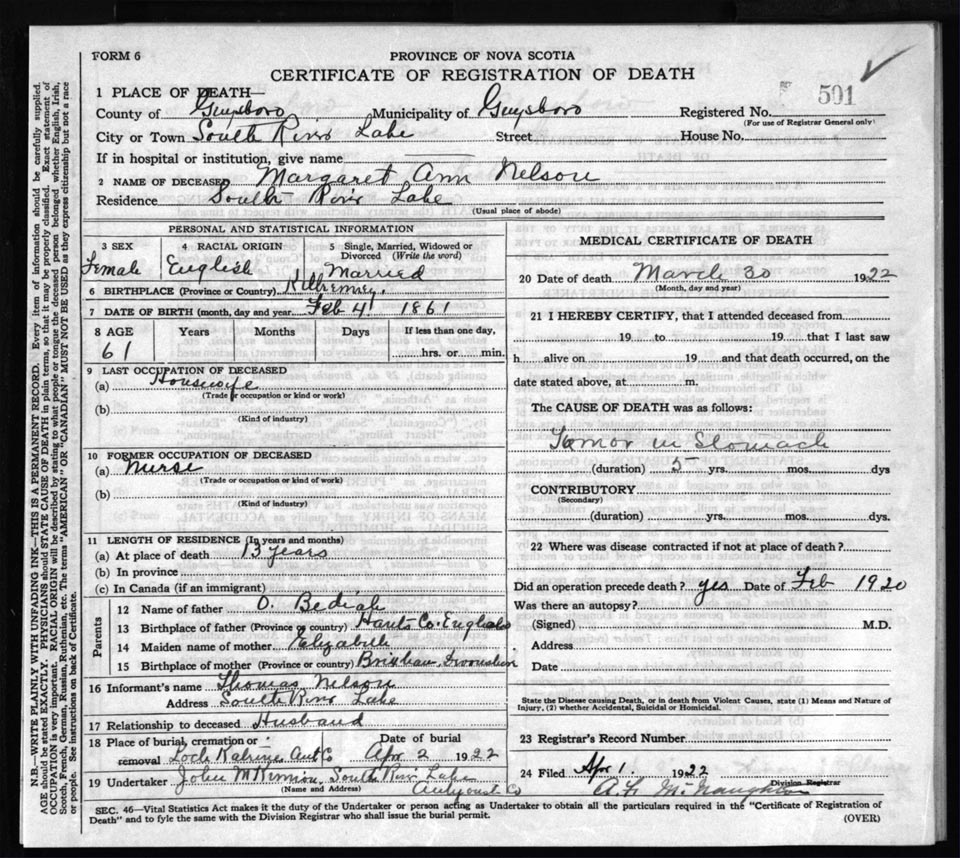 FORM 6
PROVINCE OF NOVA SCOTIA
CERTIFICATE OF REGISTRATION OF DEATH
1 PLACE OF DEATH—
County of Guysboro Municipality of Guysboro Registered No. 501
(For use of Registrar General only)
City or Town South River Lake Street House No.
If in hospital or institution, give name
2 NAME OF DECEASED Margaret Ann Nelson
Residence South River Lake
(Usual place of abode)
PERSONAL AND STATISTICAL INFORMATION
3 SEX 4 RACIAL ORIGIN 5 Single, Married, Widowed or Divorced (Write the word)
Female English Married
6 BIRTHPLACE (Province or Country)
7 DATE OF BIRTH (month, day and year Feb 4 1861
8 AGE Years Months Days If less than one day,
61 hrs. or min.
9 LAST OCCUPATION OF DECEASED
(a) Housewife
(Trade or occupation or kind or work)
(b)
(Kind of industry)
10 FORMER OCCUPATION OF DECEASED
(a) Nurse
(Trade or occupation or kind of work)
(b)
(Kind of industry)
11 LENGTH OF RESIDENCE (In years and months)
(a) At place of death 13 years
(b) In province
(c) In Canada (if an immigrant)
Parents
12 Name of father O. Bediah
13 Birthplace of father (Province or country) Hants Co. England
14 Maiden name of mother Elizabeth
15 Birthplace of mother (Province or country)
16 Informant's name Thomas Nelson
Address South River Lake
17 Relationship to deceased Husband
18 Place of burial, cremation or removal Date of burial
Loch Katrine Ant Co Apr 2 1922
19 Undertaker John McKinnon, South River Lake
(Name and Address) Co
MEDICAL CERTIFICATE OF DEATH
20 Date of death March 30 1922
(Month, day and year)
21 I HEREBY CERTIFY, that I attended deceased from
19 to 19 that I last saw
h alive on 19 and that death occurred, on the
date stated above, at m.
The CAUSE OF DEATH was as follows:
Tumor in Stomach
(duration) 5 yrs. mos. dys
CONTRIBUTORY
(Secondary)
(duration) yrs. mos. dys.
22 Where was disease contracted if not at place of death?
Did an operation precede death? yes Date of Feb 1920
Was there an autopsy?
(Signed) M.D.
Address
Date
State the Disease causing Death, or in death from Violent Causes, state (1) Means and Nature of
Injury, (2) whether Accidental, Suicidal or Homicidal.
23 Registrar's Record Number
24 Filed Apr 1 1922
Division Registrar
SEC. 46—Vital Statistics Act makes it the duty of the Undertaker or person acting as Undertaker to obtain all the particulars required in the "Certificate of Registration of
Death" and to fyle the same with the Division Registrar who shall issue the burial permit.
(OVER)
N.B.—WRITE PLAINLY WITH UNFADING INK—THIS IS A PERMANENT RECORD. Every item of information should be carefully supplied.
AGE should be stated EXACTLY. PHYSICIANS should STATE CAUSE OF DEATH in plain terms, so that it may be properly classified. Exact statement of
OCCUPATION is very important. RACIAL ORIGIN will be described by stating to what people or tongue the deceased person belonged whether English, Irish,
Scotch, French, German, Russian, Ruthenian, etc. The terms "AMERICAN" OR "CANADIAN" MUST NOT BE USED as they express citizenship but not a race
or people. See instructions on back of Certificate.